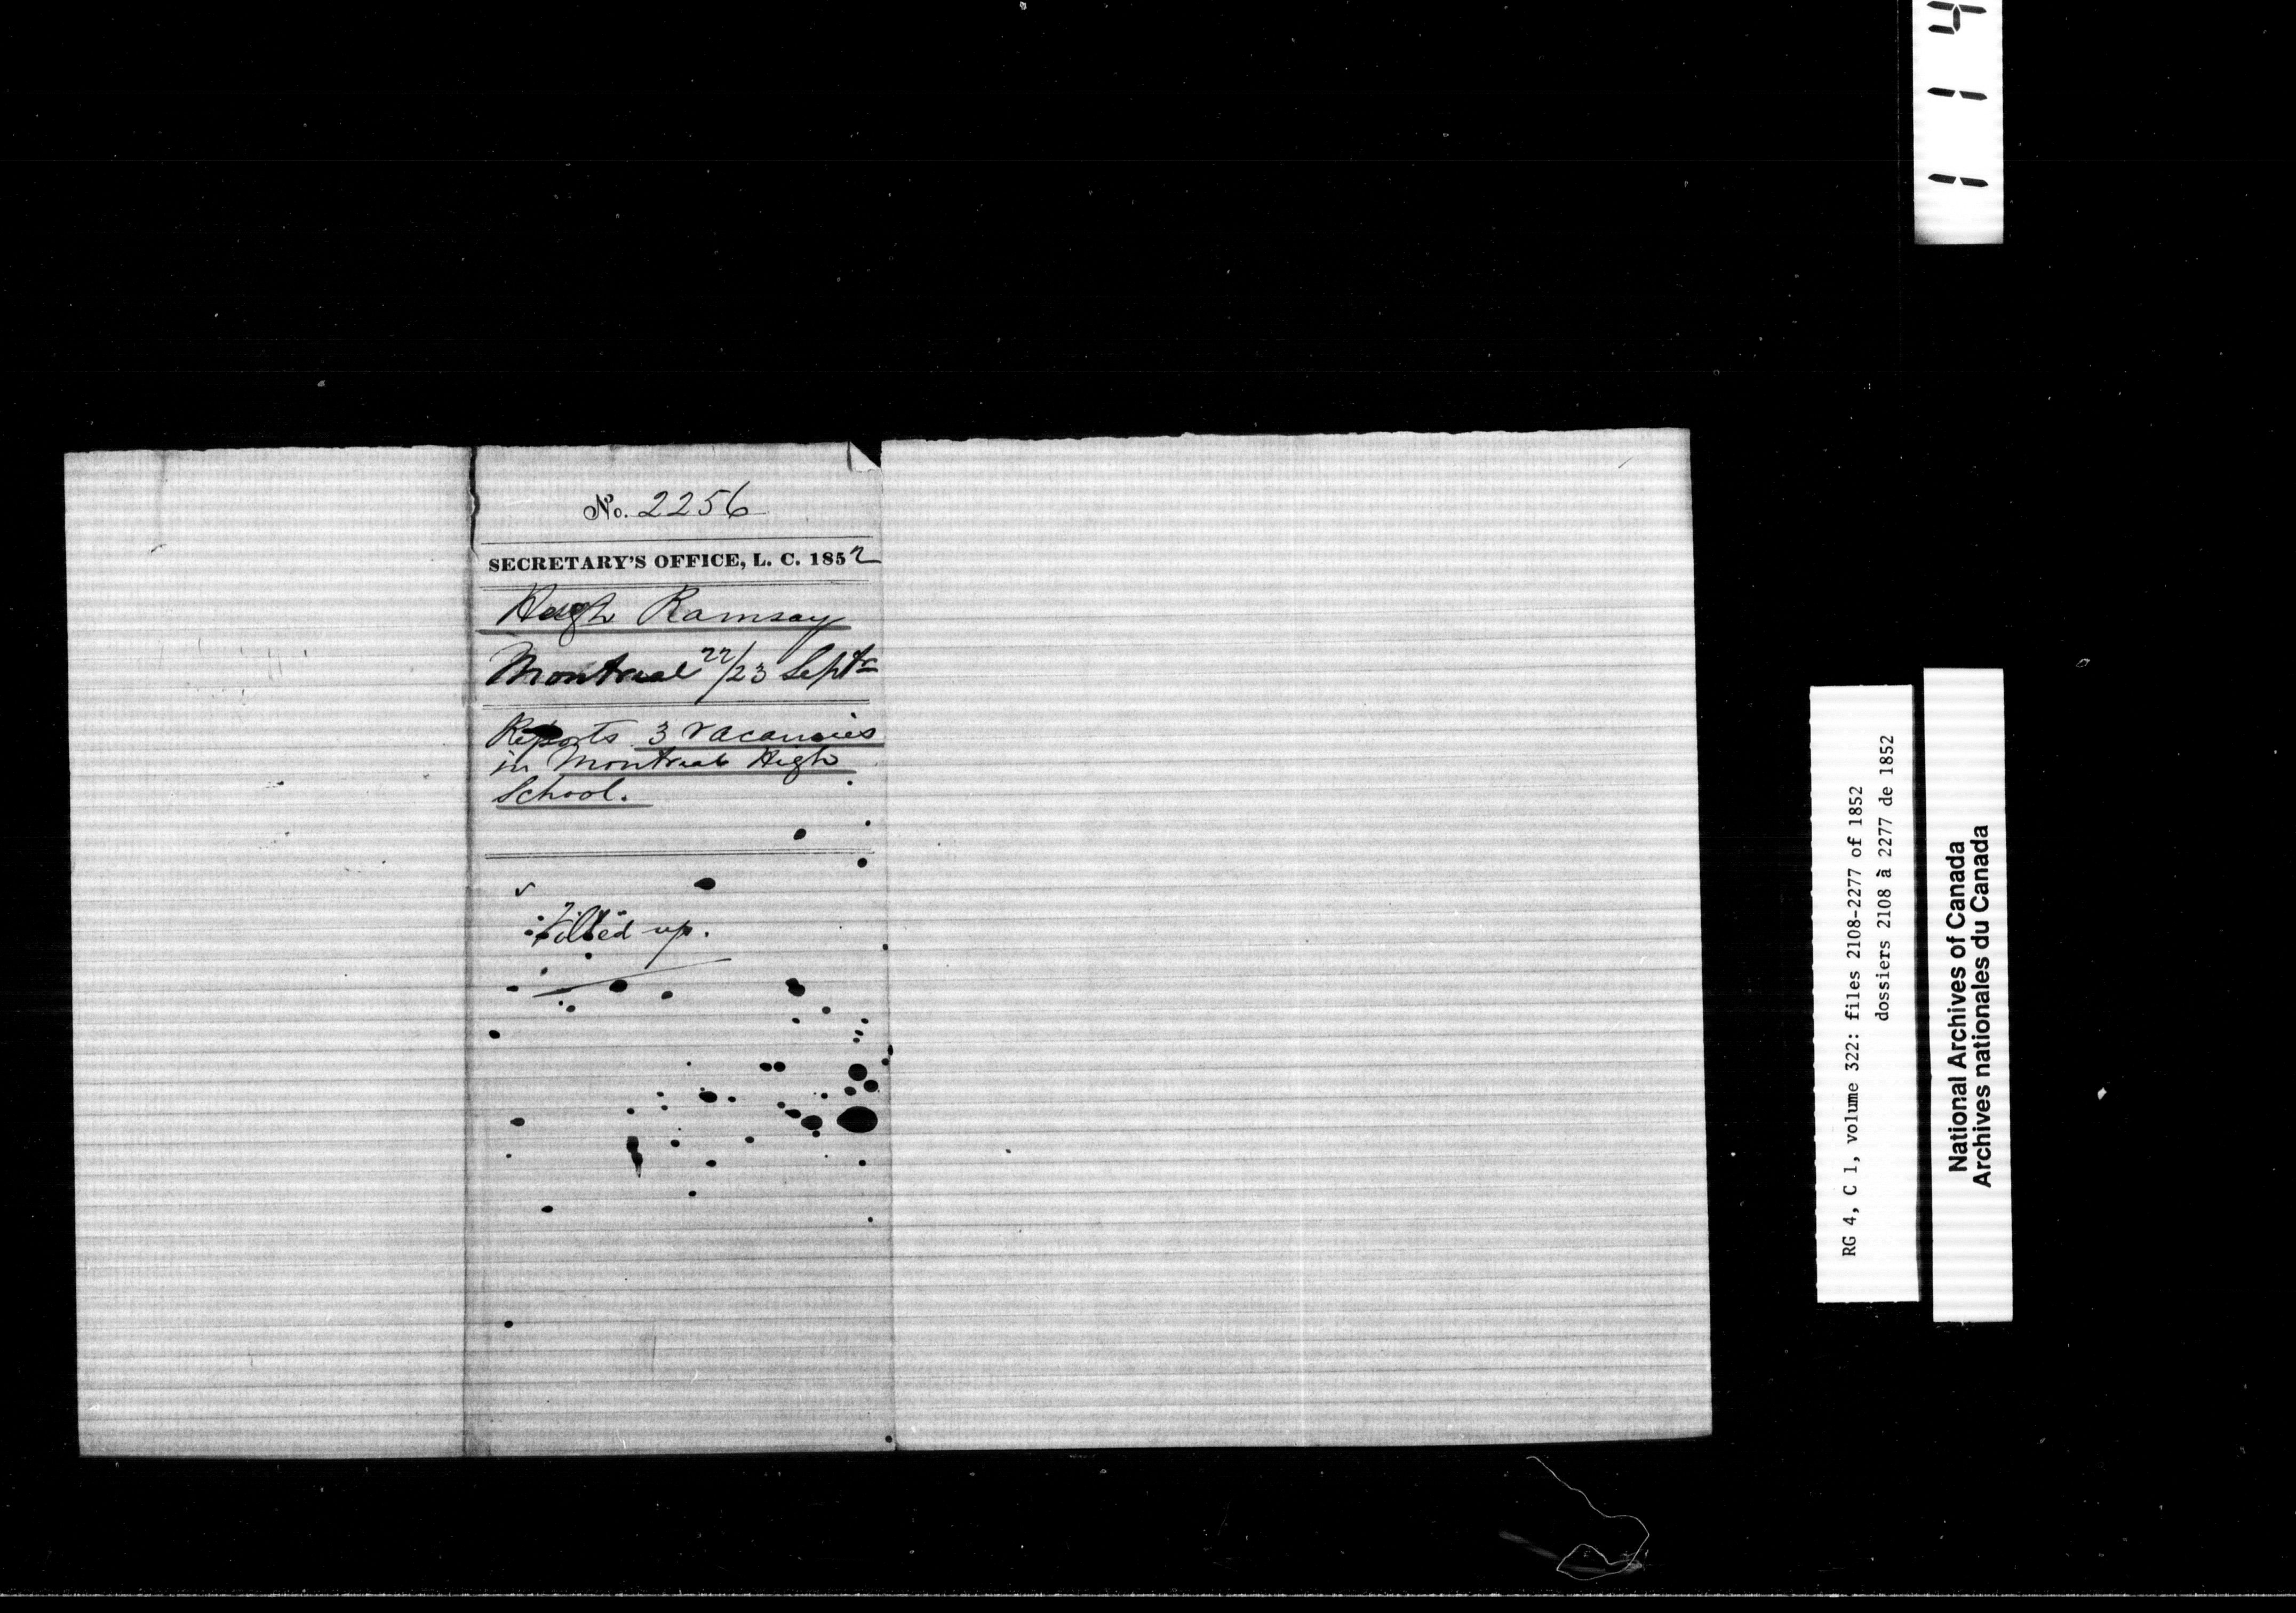 No. 2256
SECRETARY'S OFFICE, L. C. 1852
Hugh Ramsay
Montreal 22/23 Septr
Reports 3 vacancies
in Montreal High
School.
✓
Filled up.
1 1 4
RG 4, C 1, volume 322: files 2108-2277 of 1852
dossiers 2108 à 2277 de 1852
National Archives of Canada
Archives nationales du Canada